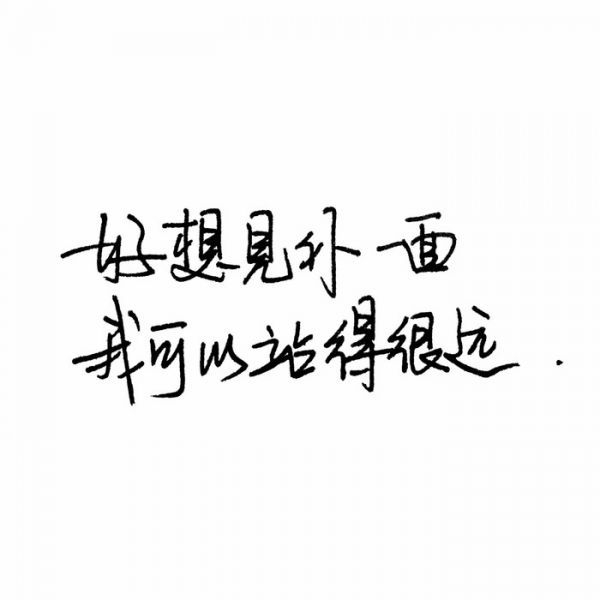 好想見你一面
我可以站得很远.